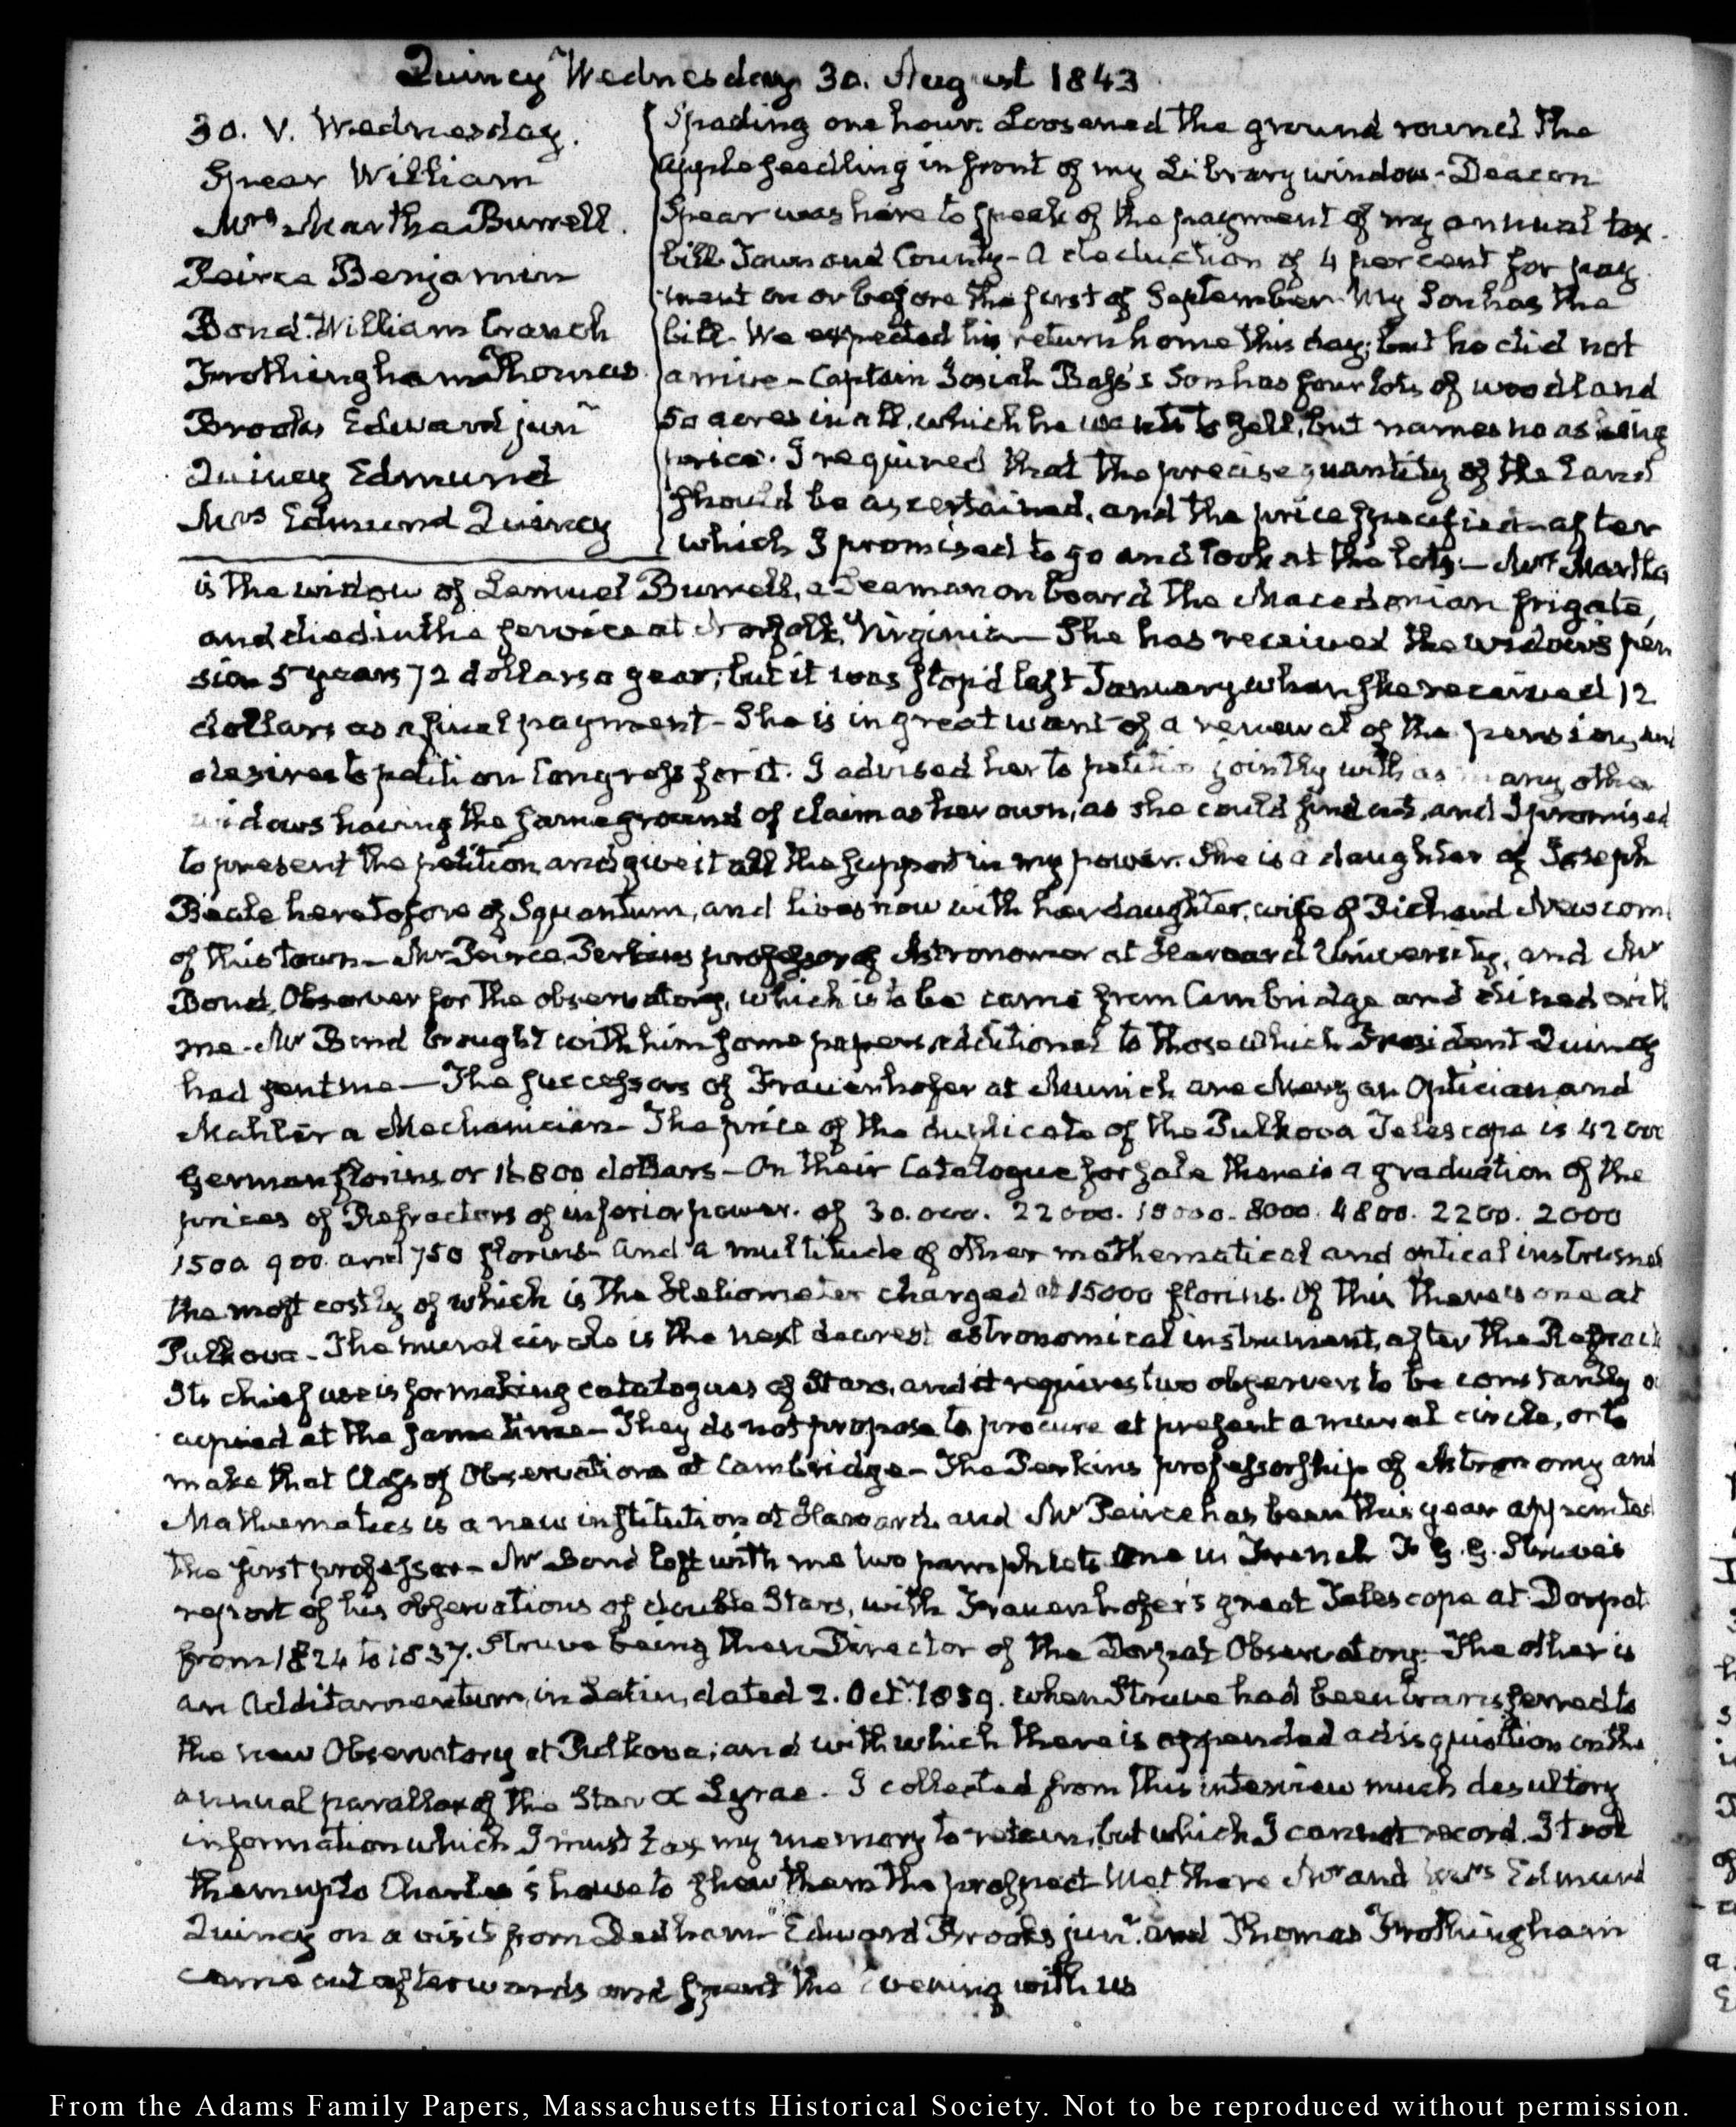 Quincy Wednesday 30. August 1843
30. V. Wednesday.
Spear William
Mrs Martha Burrell.
Peirce Benjamin
Bond. William Cranch
Frothingham Thomas
Brooks Edward junr
Quincy Edmund
Mrs Edmund Quincy
Spading one hour. Loosened the ground round the
apple seedling in front of my Library window - Deacon
Spear was here to speak of the payment of my annual tax
bill Town and County - A deduction of 4 per cent for pay
ment on or before the first of September. My Son has the
bill. We expected his return home this day; but he did not
arrive - Captain Josiah Bass's Son has four lots of woodland
50 acres in all, which he wants to sell, but names no asking
price. I required that the precise quantity of the Land
should be ascertained, and the price specified - after
which I promised to go and look at the lots - Mrs Martha
is the widow of Lemuel Burrell, a Seaman on board the Macedonian frigate,
and died in the service at Norfolk, Virginia - She has received the widow's pen
sion 5 years 72 dollars a year; but it was stop'd last January when she received 12
dollars as a final payment - She is in great want of a renewal of the pension, and
desires to petition Congress for it. I advised her to petition jointly with as many other
widows having the same ground of claim as her own, as she could find out, and I promised
to present the petition and give it all the support in my power. She is a daughter of Joseph
Beale heretofore of Squantum, and lives now with her daughter, wife of Richard Newcomb
of this town - Mr Peirce, Perkins professor of Astronomer at Harvard University, and Mr
Bond, Observer for the observatory, which is to be came from Cambridge and dined with
me - Mr Bond brought with him some papers additional to those which President Quincy
had sent me - The successors of Frauenhofer at Munich are Merz an Optician and
Mahler a Mechanician - The price of the duplicate of the Pulkova Telescope is 42000
German florins or 16800 dollars - On their Catalogue for sale there is a graduation of the
prices of Refractors of inferior power. of 30.000. 22000. 18000. 8000. 4800. 2200. 2000
1500. 900. and 750 florins - and a multitude of other mathematical and optical instrumen
the most costly of which is the Heliometer charged at 15000 florins. Of this there is one at
Pulkova - The mural circle is the next dearest astronomical instrument, after the Refract
Its chief use is for making catalogues of Stars, and it requires two observers to be constantly oc
cupied at the same time - They do not propose to procure at present a mural circle, or to
make that Class of Observations at Cambridge - The Perkins professorship of Astronomy and
Mathematics is a new institution at Harvard, and Mr Peirce has been this year appointed
the first professor - Mr Bond left with me two pamphlets One in French F. G. G. Struve's
report of his observations of double Stars, with Frauenhofer's great Telescope at Dorpat
from 1824 to 1837. Struve being then Director of the Dorpat Observatory - The other is
an Additamentum, in Latin, dated 2. Octr 1839. when Struve had been transferred to
the new Observatory at Pulkova; and with which there is appended a disquisition on the
annual parallax of the Star α Lyrae. I collected from this interview much desultory
information which I must tax my memory to retain, but which I cannot record. I took
them up to Charles's house to shew them the prospect Met there Mr and Mrs Edmund
Quincy on a visit from Dedham - Edward Brooks junr. and Thomas Frothingham
came out afterwards and spent the Evening with us
From the Adams Family Papers, Massachusetts Historical Society. Not to be reproduced without permission.